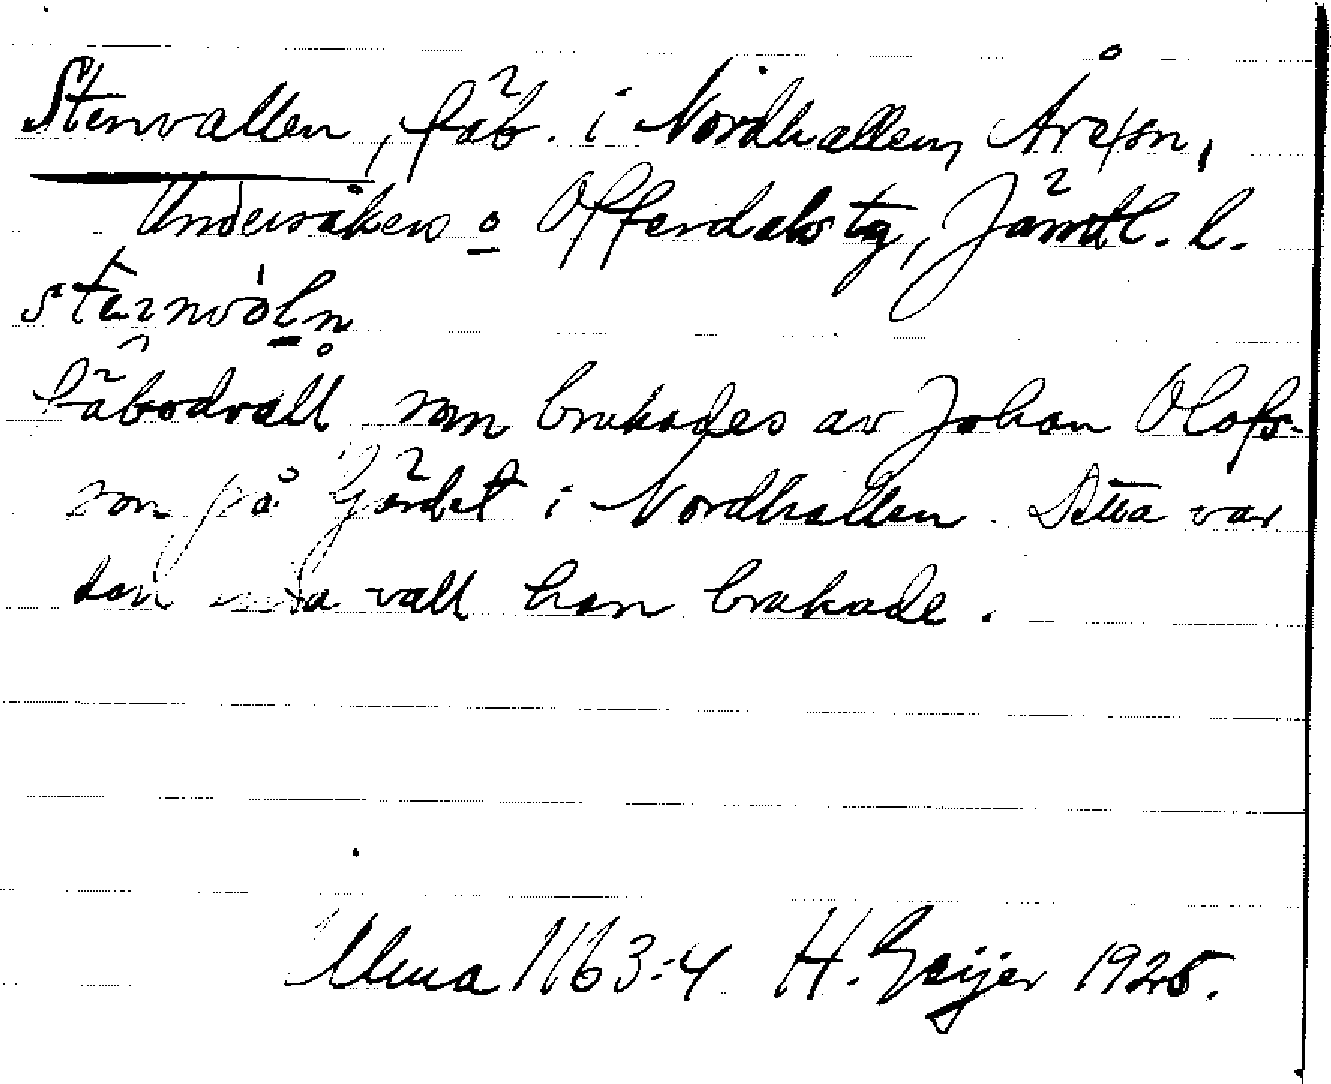 Stenvallen, fäb. i Nordhallen, Åre sn,
Undersåkers o Offerdals tg, Jämtl. l.
fäbodvall som brukades av Johan Olofs-
son på Gärdet i Nordhallen. Detta var
den enda vall han brukade.
Ulma 1163:4 H. Geijer 1925.